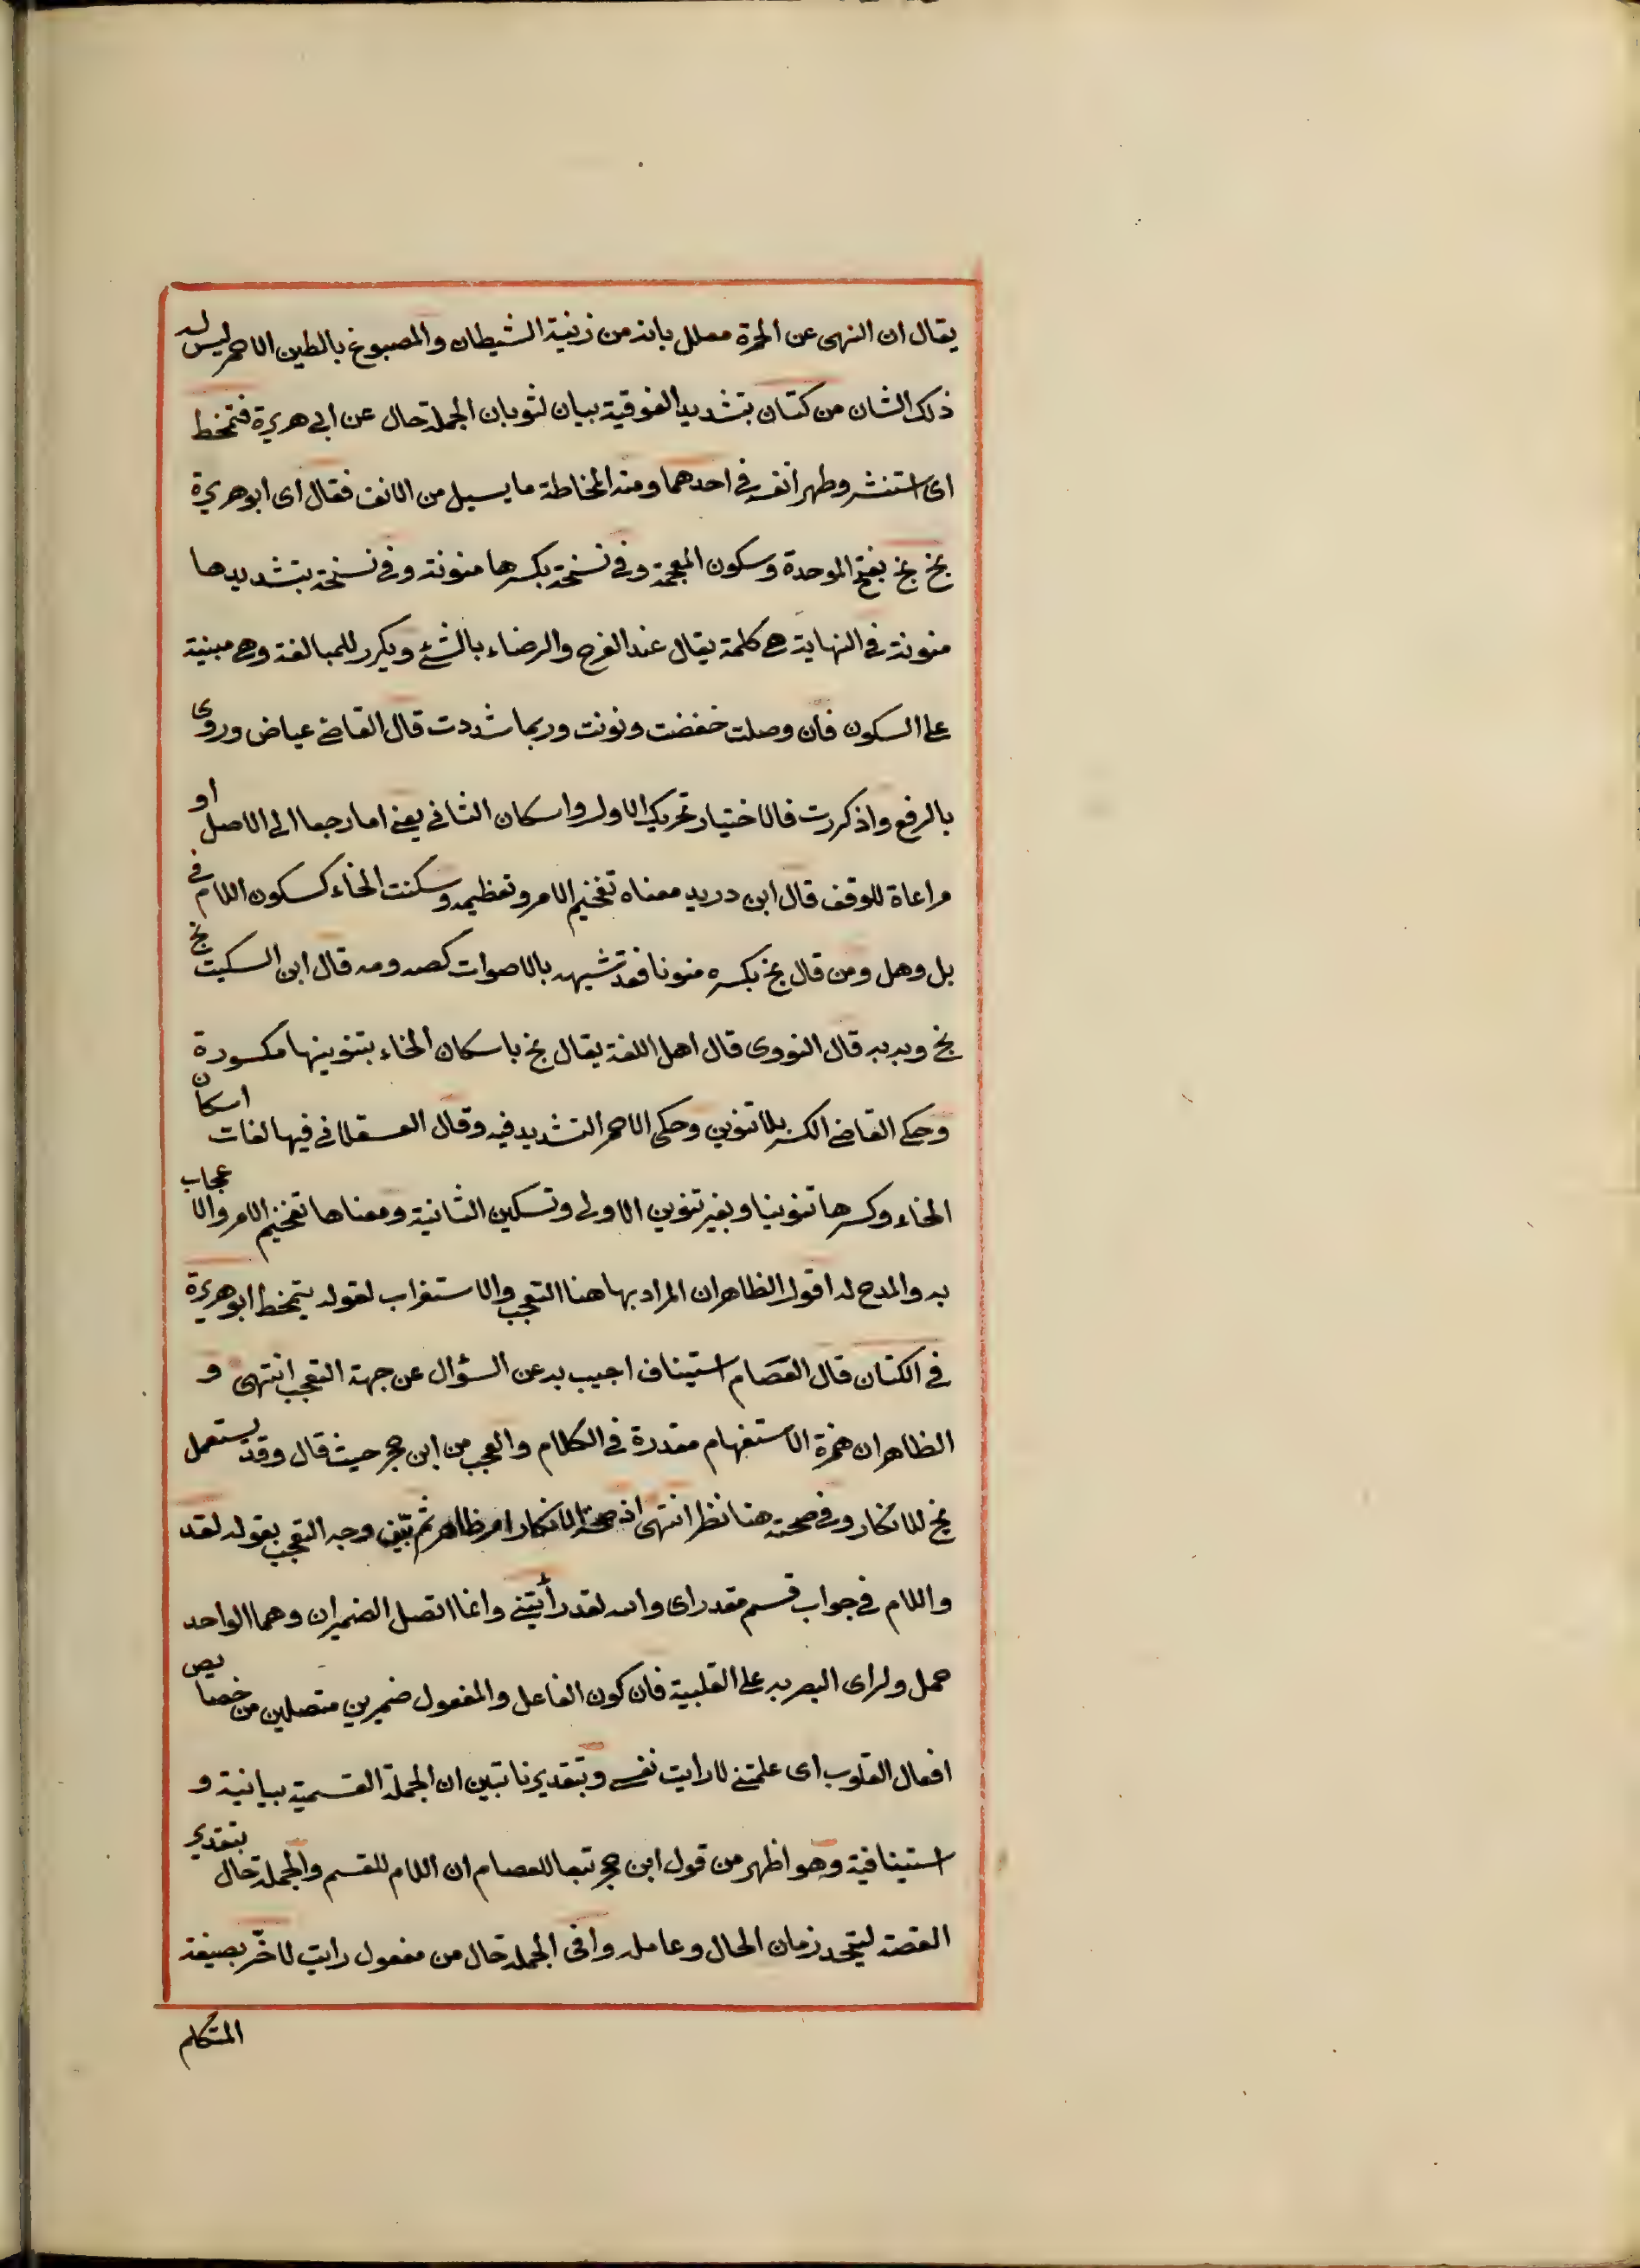 يقال ان النهى عن الحمرة معلل بانه من زينة الشيطان والمصبوغ بالطين الاحمر ليس له
ذلك الشان من كتان بتشديد الفوقية بيان لثوبان الجملة حال عن ابى هريرة فتمخط
اى استنثر وطهر أنفه فى احدهما ومنه المخاطة ما يسيل من الانف فقال اى ابو هريرة
بخ بخ بفتح الموحدة وسكون المعجمة وفى نسخة بكسرها منونة وفى نسخة بتشديدها
منونة فى النهاية هى كلمة يقال عند الفرح والرضاء بالشئ ويكرر للمبالغة وهى مبنية
على السكون فان وصلت خفضت ونونت وربما شددت قال القاضى عياض وروى
بالرفع واذ كررت فالاختيار تحريك الاول واسكان الثانى يعنى اما رجعا الى الاصل او
مراعاة للوقف قال ابن دريد معناه تفخيم الامر وتعظيمه وسكنت الخاء كسكون اللام فى
بل وهل ومن قال بخ بكسره منونا فقد شبهه بالاصوات كصه ومه قال ابن السكيت بخ
بخ وبه به قال النووى قال اهل اللغة يقال بخ باسكان الخاء بتنوينها مكسورة
وحكى القاضى الكسر بلا تنوين وحكى الاحمر التشديد فيه وقال العسقلانى فيها لغات اسكان
الخاء وكسرها تنوينا وبغير تنوين الاولى وتسكين الثانية ومعناها تفخيم الامر والاعجاب
به والمدح له اقول الظاهر ان المراد بها هنا التعجب والاستغراب لقوله يتمخط ابو هريرة
فى الكتان قال العصام استيناف اجيب به عن السؤال عن جهة التعجب انتهى و
الظاهر ان همزة الاستفهام مقدرة فى الكلام والعجب من ابن حجر حيث قال وقد يستعمل
بخ للانكار وفى صحته هنا نظر انتهى اذ صحة الانكار امر ظاهر ثم بيّن وجه التعجب بقوله لقد
واللام فى جواب قسم مقدر اى والله لقد رأيتنى وانما اتصل الضميران وهما الواحد
حمل ولراى البصريه على القلبية فان كون الفاعل والمفعول ضميرين متصلين من خصايص
افعال القلوب اى علمتنى لا رايت نفسى وبتقديرنا تبين ان الجملة القسمية بيانية و
استينافية وهو اظهر من قول ابن حجر تبعا للعصام ان اللام للقسم والجملة حال بتقدير
القصة ليتحد زمان الحال وعامله وانى الجملة حال من مفعول رايت لاخّر بصيغة
المتكلم